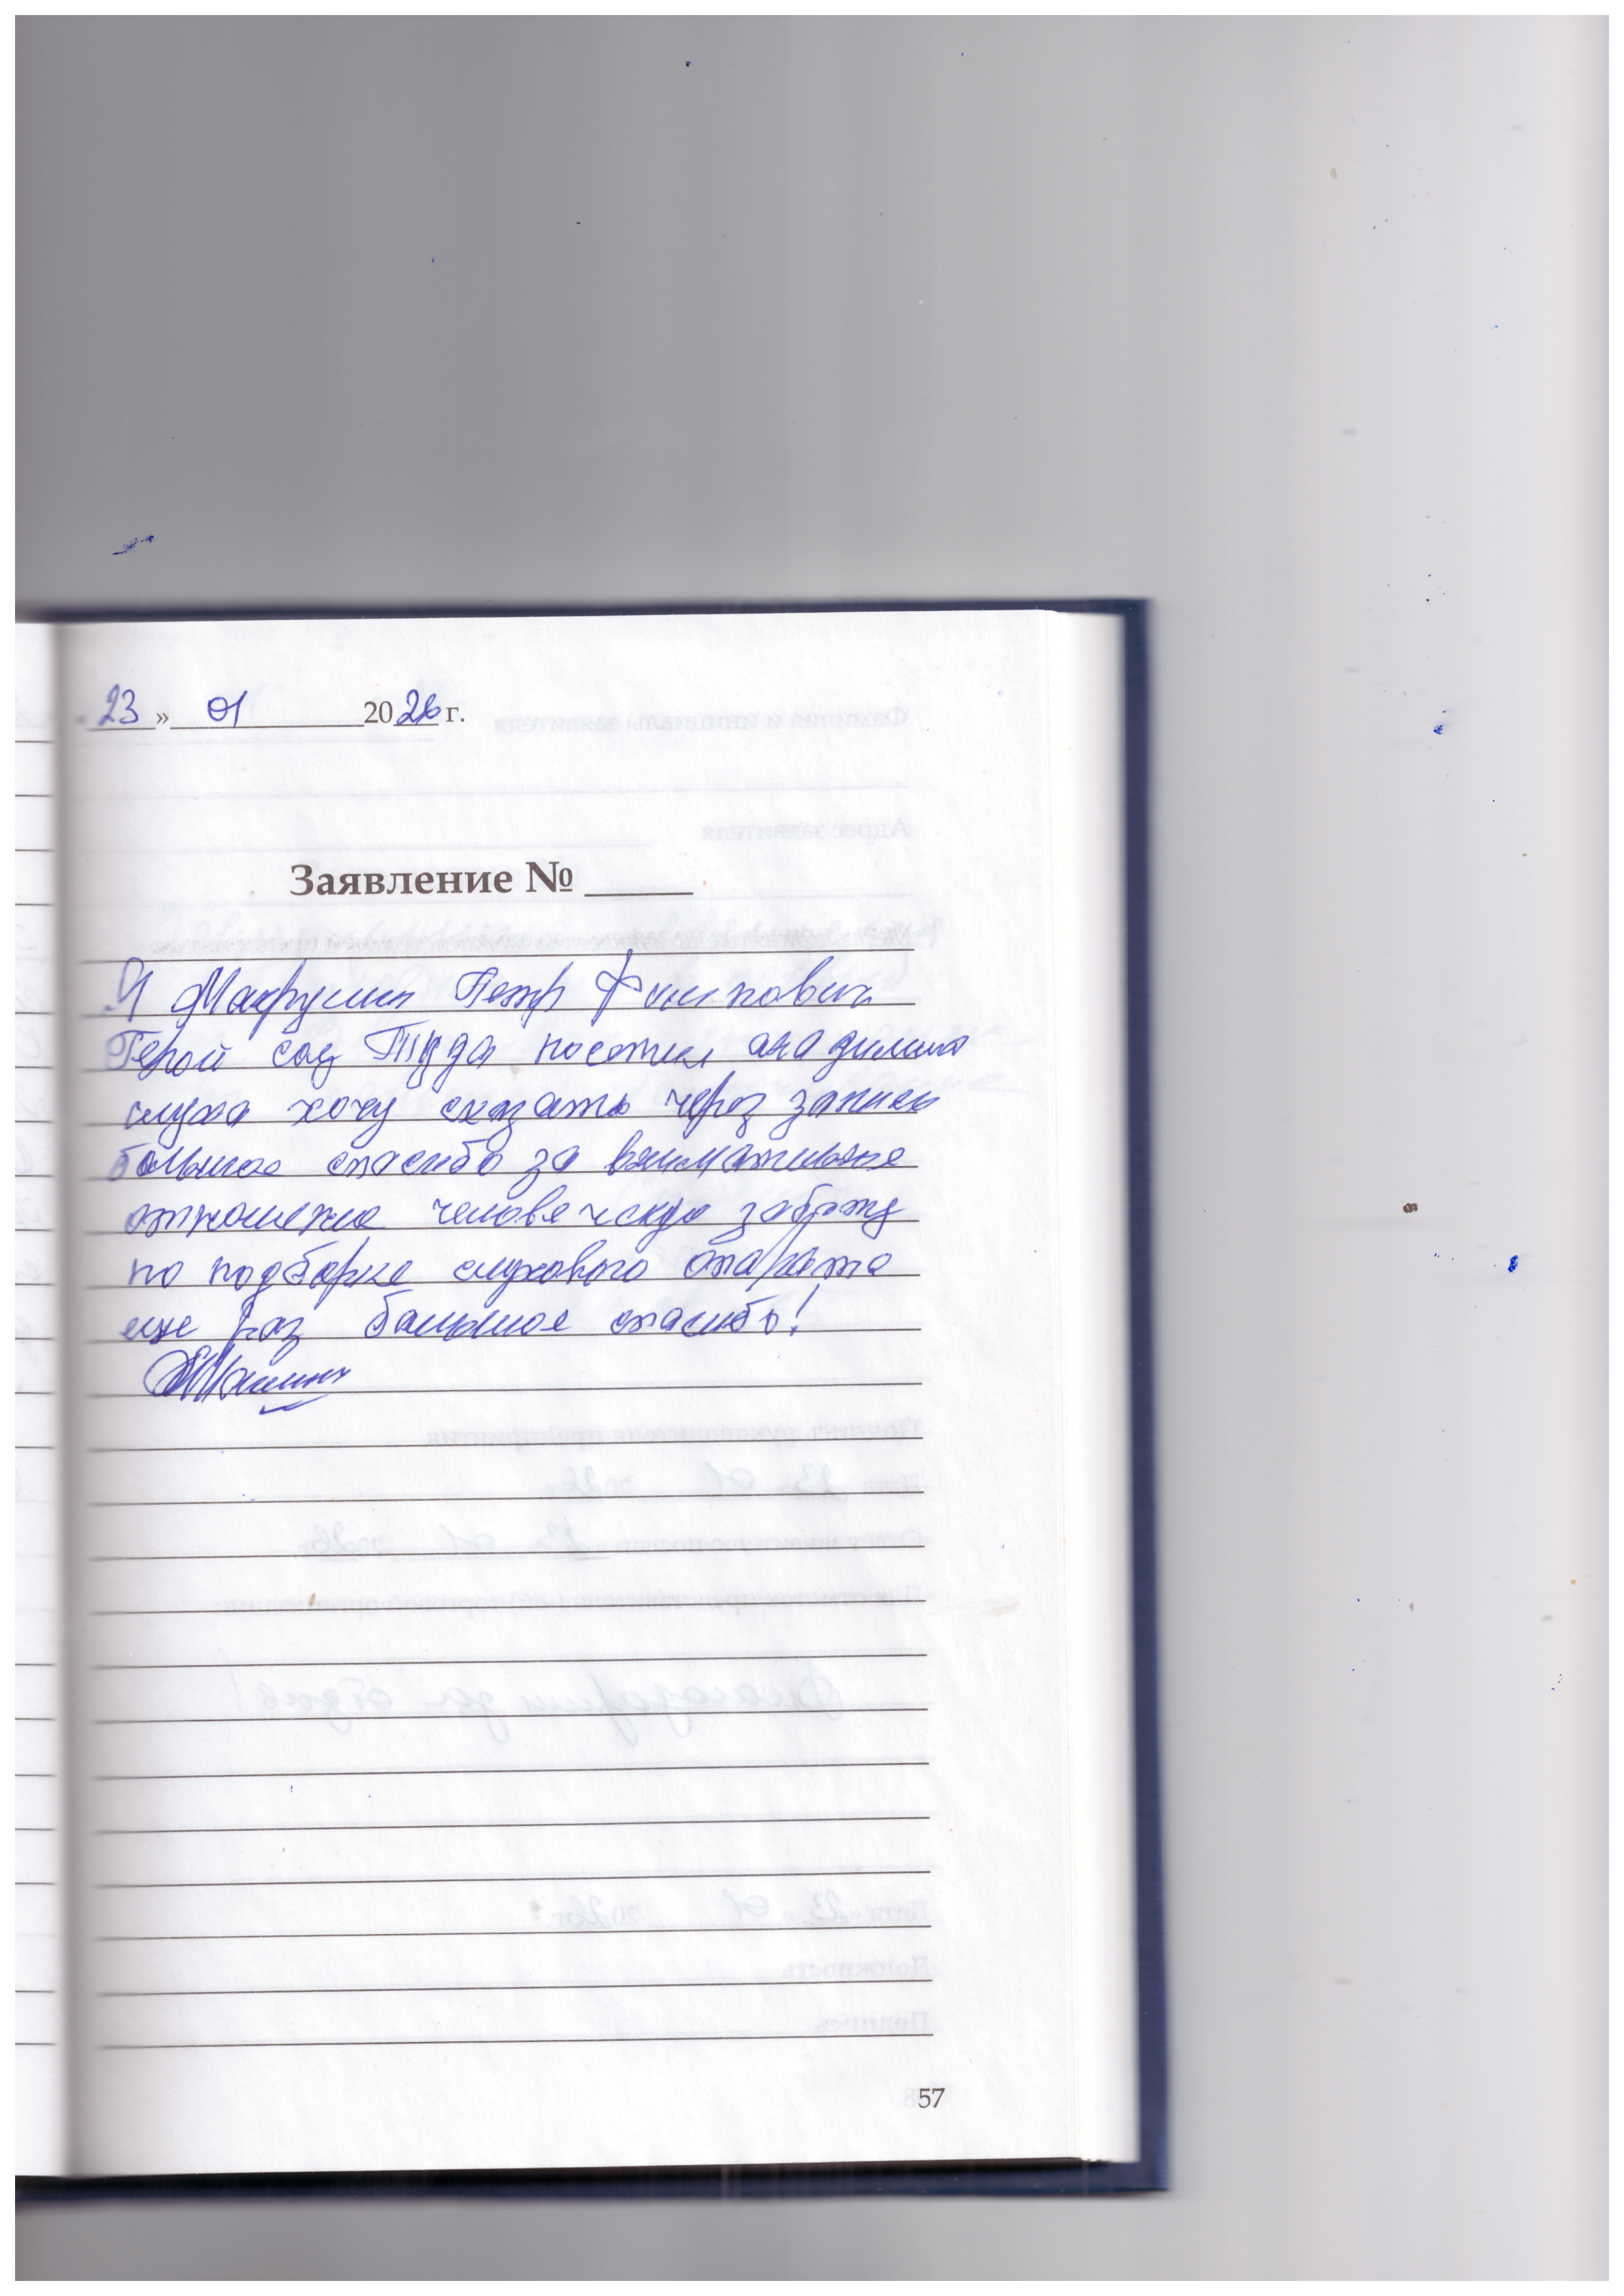 23 » 01 2026 г.
Заявление №
Я Петр Филипович
Герой соц Труда посетил академию
слуха хочу сказать через запись
большое спасибо за внимательное
отношение человеческую заботу
по подборке слухового апарата
еще раз большое спасибо!
57